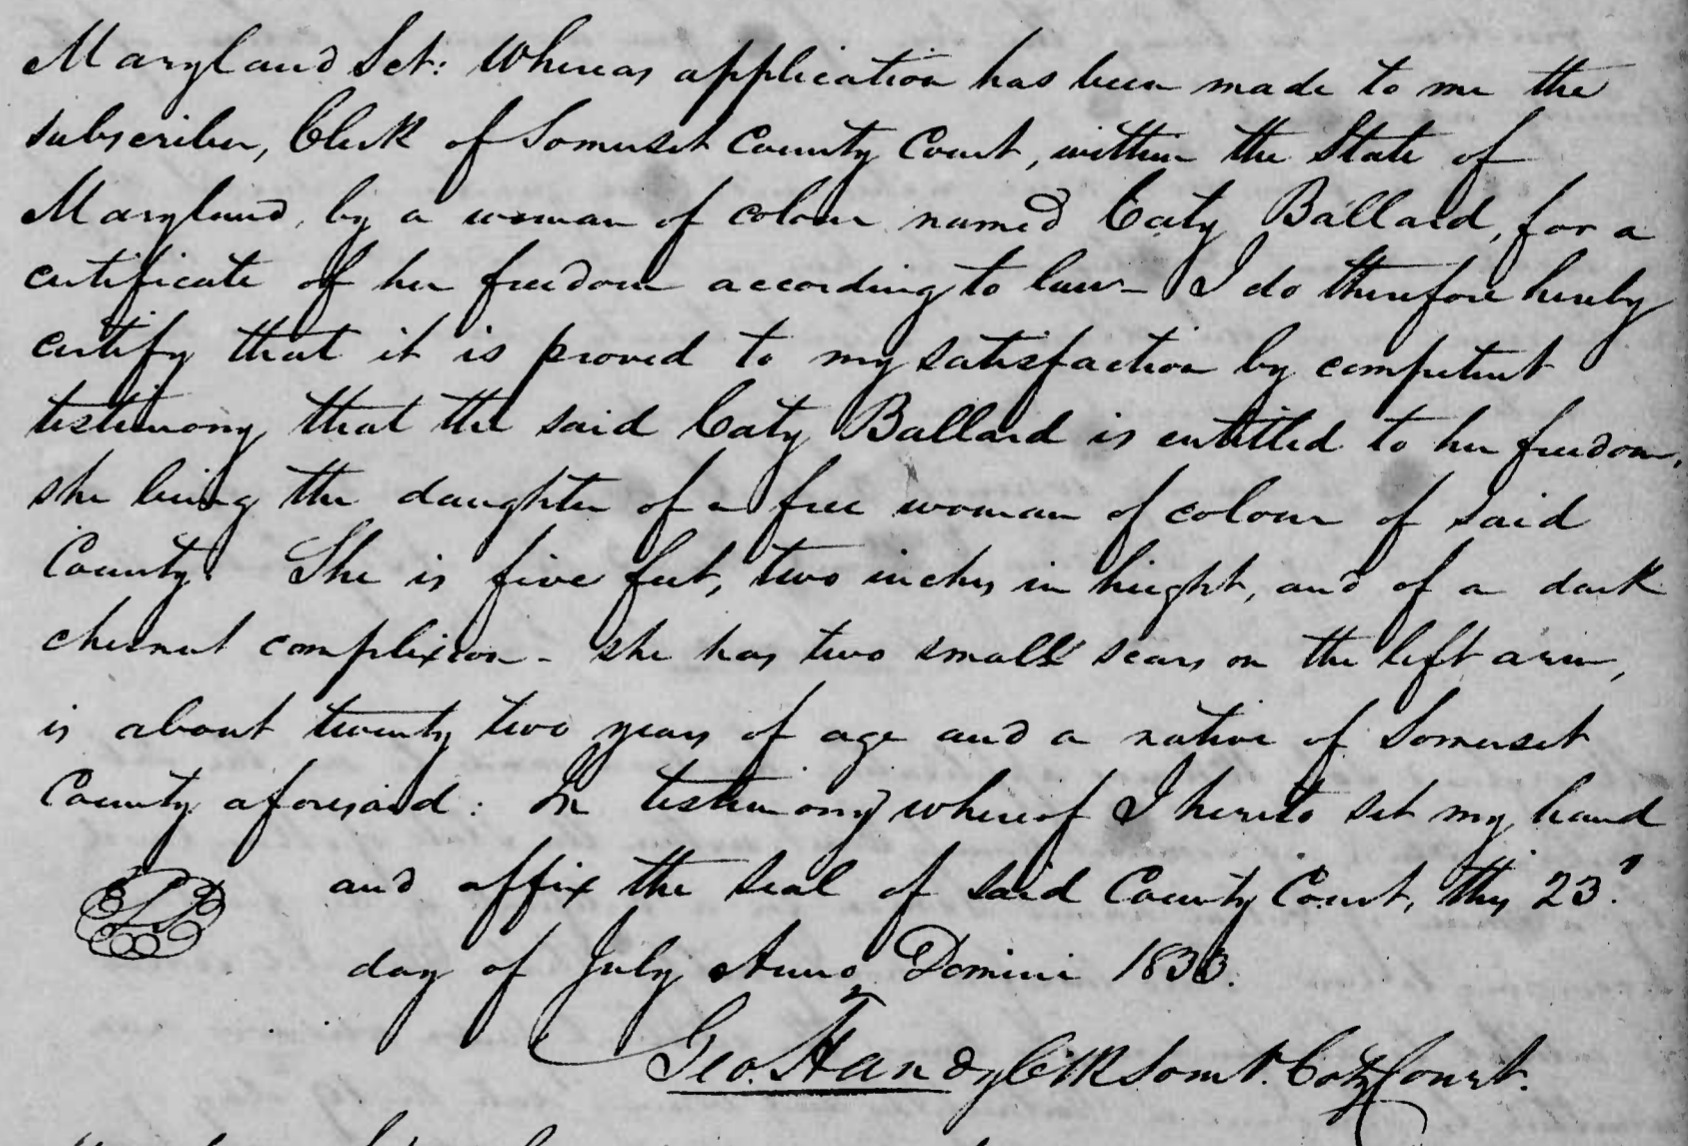 Maryland Sct: Whereas application has been made to me the
subscriber, Clerk of Somerset County Court, within the State of
Maryland, by a woman of colour named Caty Ballard, for a
certificate of her freedom according to law- I do therefore hereby
certify that it is proved to my satisfaction by competent
testimony that the said Caty Ballard is entitled to her freedom,
she being the daughter of a free woman of colour of said
County. She is five feet, two inches in height, and of a dark
chesnut complexion- she has two small scars on the left arm,
is about twenty two years of age and a native of Somerset
County aforesaid: In testimony whereof I hereto set my hand
and affix the seal of said County Court, this 23.d
day of July Anno Domini 1833.
Geo. Handy Clk Somt. Coty Court.